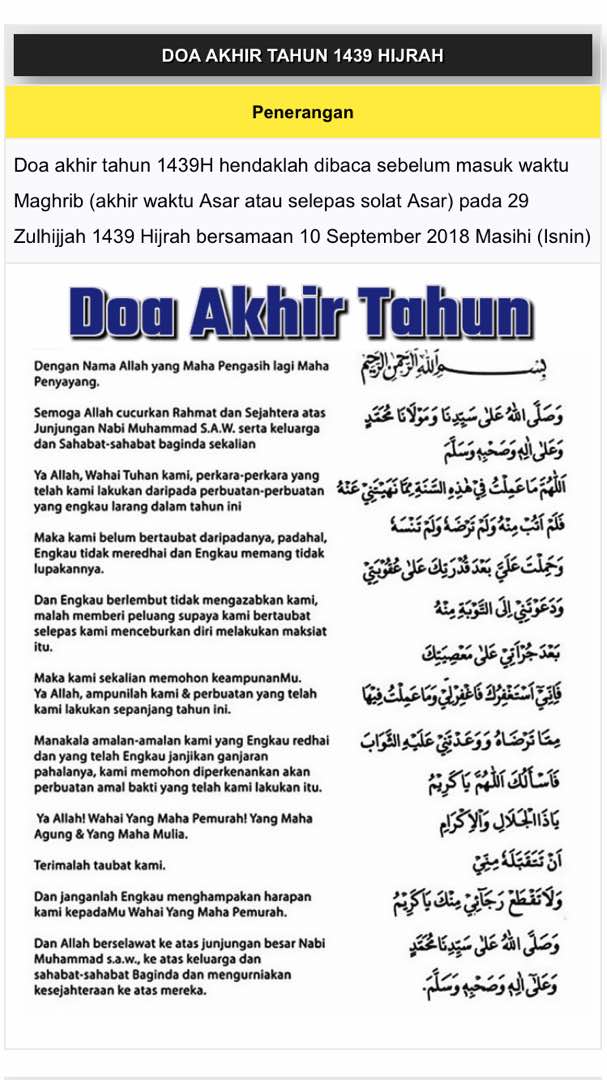 DOA AKHIR TAHUN 1439 HIJRAH
Penerangan
Doa akhir tahun 1439H hendaklah dibaca sebelum masuk waktu
Maghrib (akhir waktu Asar atau selepas solat Asar) pada 29
Zulhijjah 1439 Hijrah bersamaan 10 September 2018 Masihi (Isnin)
Doa Akhir Tahun
Dengan Nama Allah yang Maha Pengasih lagi Maha
Penyayang.
Semoga Allah cucurkan Rahmat dan Sejahtera atas
Junjungan Nabi Muhammad S.A.W. serta keluarga
dan Sahabat-sahabat baginda sekalian
Ya Allah, Wahai Tuhan kami, perkara-perkara yang
telah kami lakukan daripada perbuatan-perbuatan
yang engkau larang dalam tahun ini
Maka kami belum bertaubat daripadanya, padahal,
Engkau tidak meredhai dan Engkau memang tidak
lupakannya.
Dan Engkau berlembut tidak mengazabkan kami,
malah memberi peluang supaya kami bertaubat
selepas kami menceburkan diri melakukan maksiat
itu.
Maka kami sekalian memohon keampunanMu.
Ya Allah, ampunilah kami & perbuatan yang telah
kami lakukan sepanjang tahun ini.
Manakala amalan-amalan kami yang Engkau redhai
dan yang telah Engkau janjikan ganjaran
pahalanya, kami memohon diperkenankan akan
perbuatan amal bakti yang telah kami lakukan itu.
Ya Allah! Wahai Yang Maha Pemurah! Yang Maha
Agung & Yang Maha Mulia.
Terimalah taubat kami.
Dan janganlah Engkau menghampakan harapan
kami kepadaMu Wahai Yang Maha Pemurah.
Dan Allah berselawat ke atas junjungan besar Nabi
Muhammad s.a.w., ke atas keluarga dan
sahabat-sahabat Baginda dan mengurniakan
kesejahteraan ke atas mereka.
بِسْمِ اللهِ الرَّحْمٰنِ الرَّحِيْمِ
وَصَلَّى اللهُ عَلٰى سَيِّدِنَا وَمَوْلَانَا مُحَمَّدٍ
وَعَلٰى اٰلِهِ وَصَحْبِهِ وَسَلَّمَ
اَللّٰهُمَّ مَا عَمِلْتُ فِيْ هٰذِهِ السَّنَةِ مِمَّا نَهَيْتَنِيْ عَنْهُ
فَلَمْ اَتُبْ مِنْهُ وَلَمْ تَرْضَهُ وَلَمْ تَنْسَهُ
وَحَمِلْتَ عَلَيَّ بَعْدَ قُدْرَتِكَ عَلٰى عُقُوْبَتِيْ
وَدَعَوْتَنِيْ اِلَى التَّوْبَةِ مِنْهُ
بَعْدَ جُرْاَتِيْ عَلٰى مَعْصِيَتِكَ
فَاِنِّيْ اَسْتَغْفِرُكَ فَاغْفِرْلِيْ وَمَا عَمِلْتُ فِيْهَا
مِمَّا تَرْضَاهُ وَوَعَدْتَنِيْ عَلَيْهِ الثَّوَابَ
فَاَسْاَلُكَ اَللّٰهُمَّ يَا كَرِيْمُ
يَاذَا الْجَلَالِ وَالْاِكْرَامِ
اَنْ تَتَقَبَّلَهُ مِنِّيْ
وَلَا تَقْطَعْ رَجَآئِيْ مِنْكَ يَا كَرِيْمُ
وَصَلَّى اللهُ عَلٰى سَيِّدِنَا مُحَمَّدٍ
وَعَلٰى اٰلِهِ وَصَحْبِهِ وَسَلَّمَ.